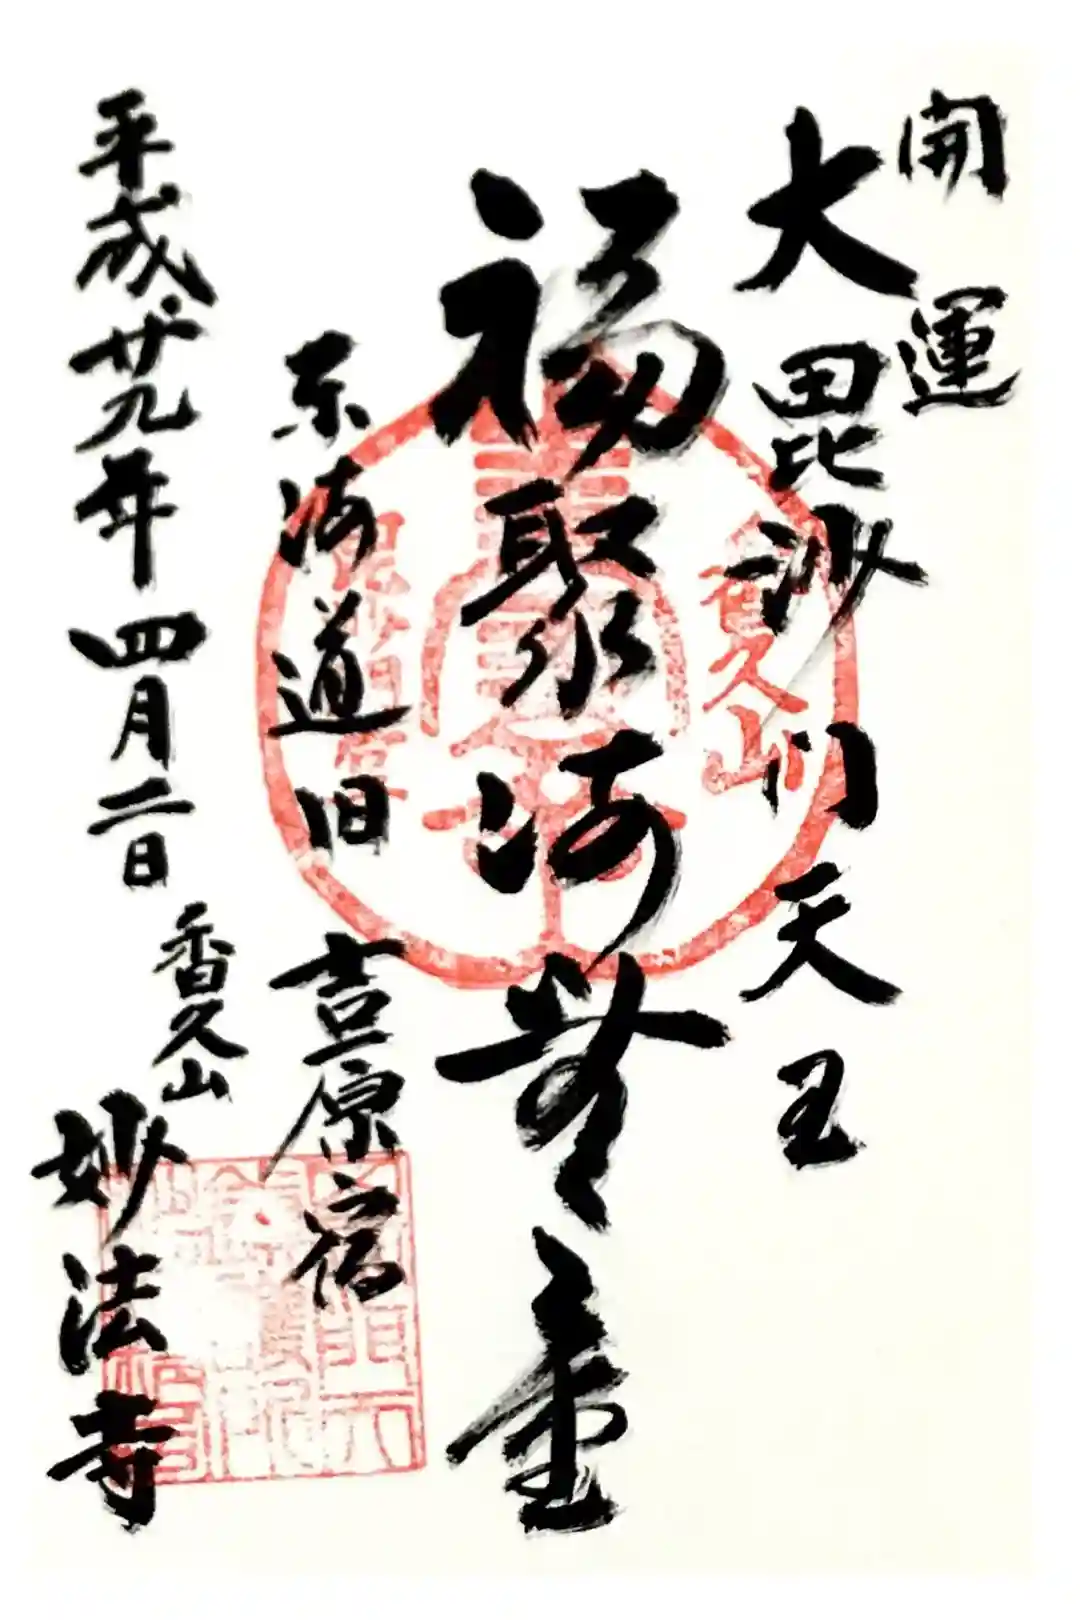 開運
大毘沙門天王
福聚海無量
東海道旧吉原宿
平成廿九年四月二日
香久山
妙法寺
香久山